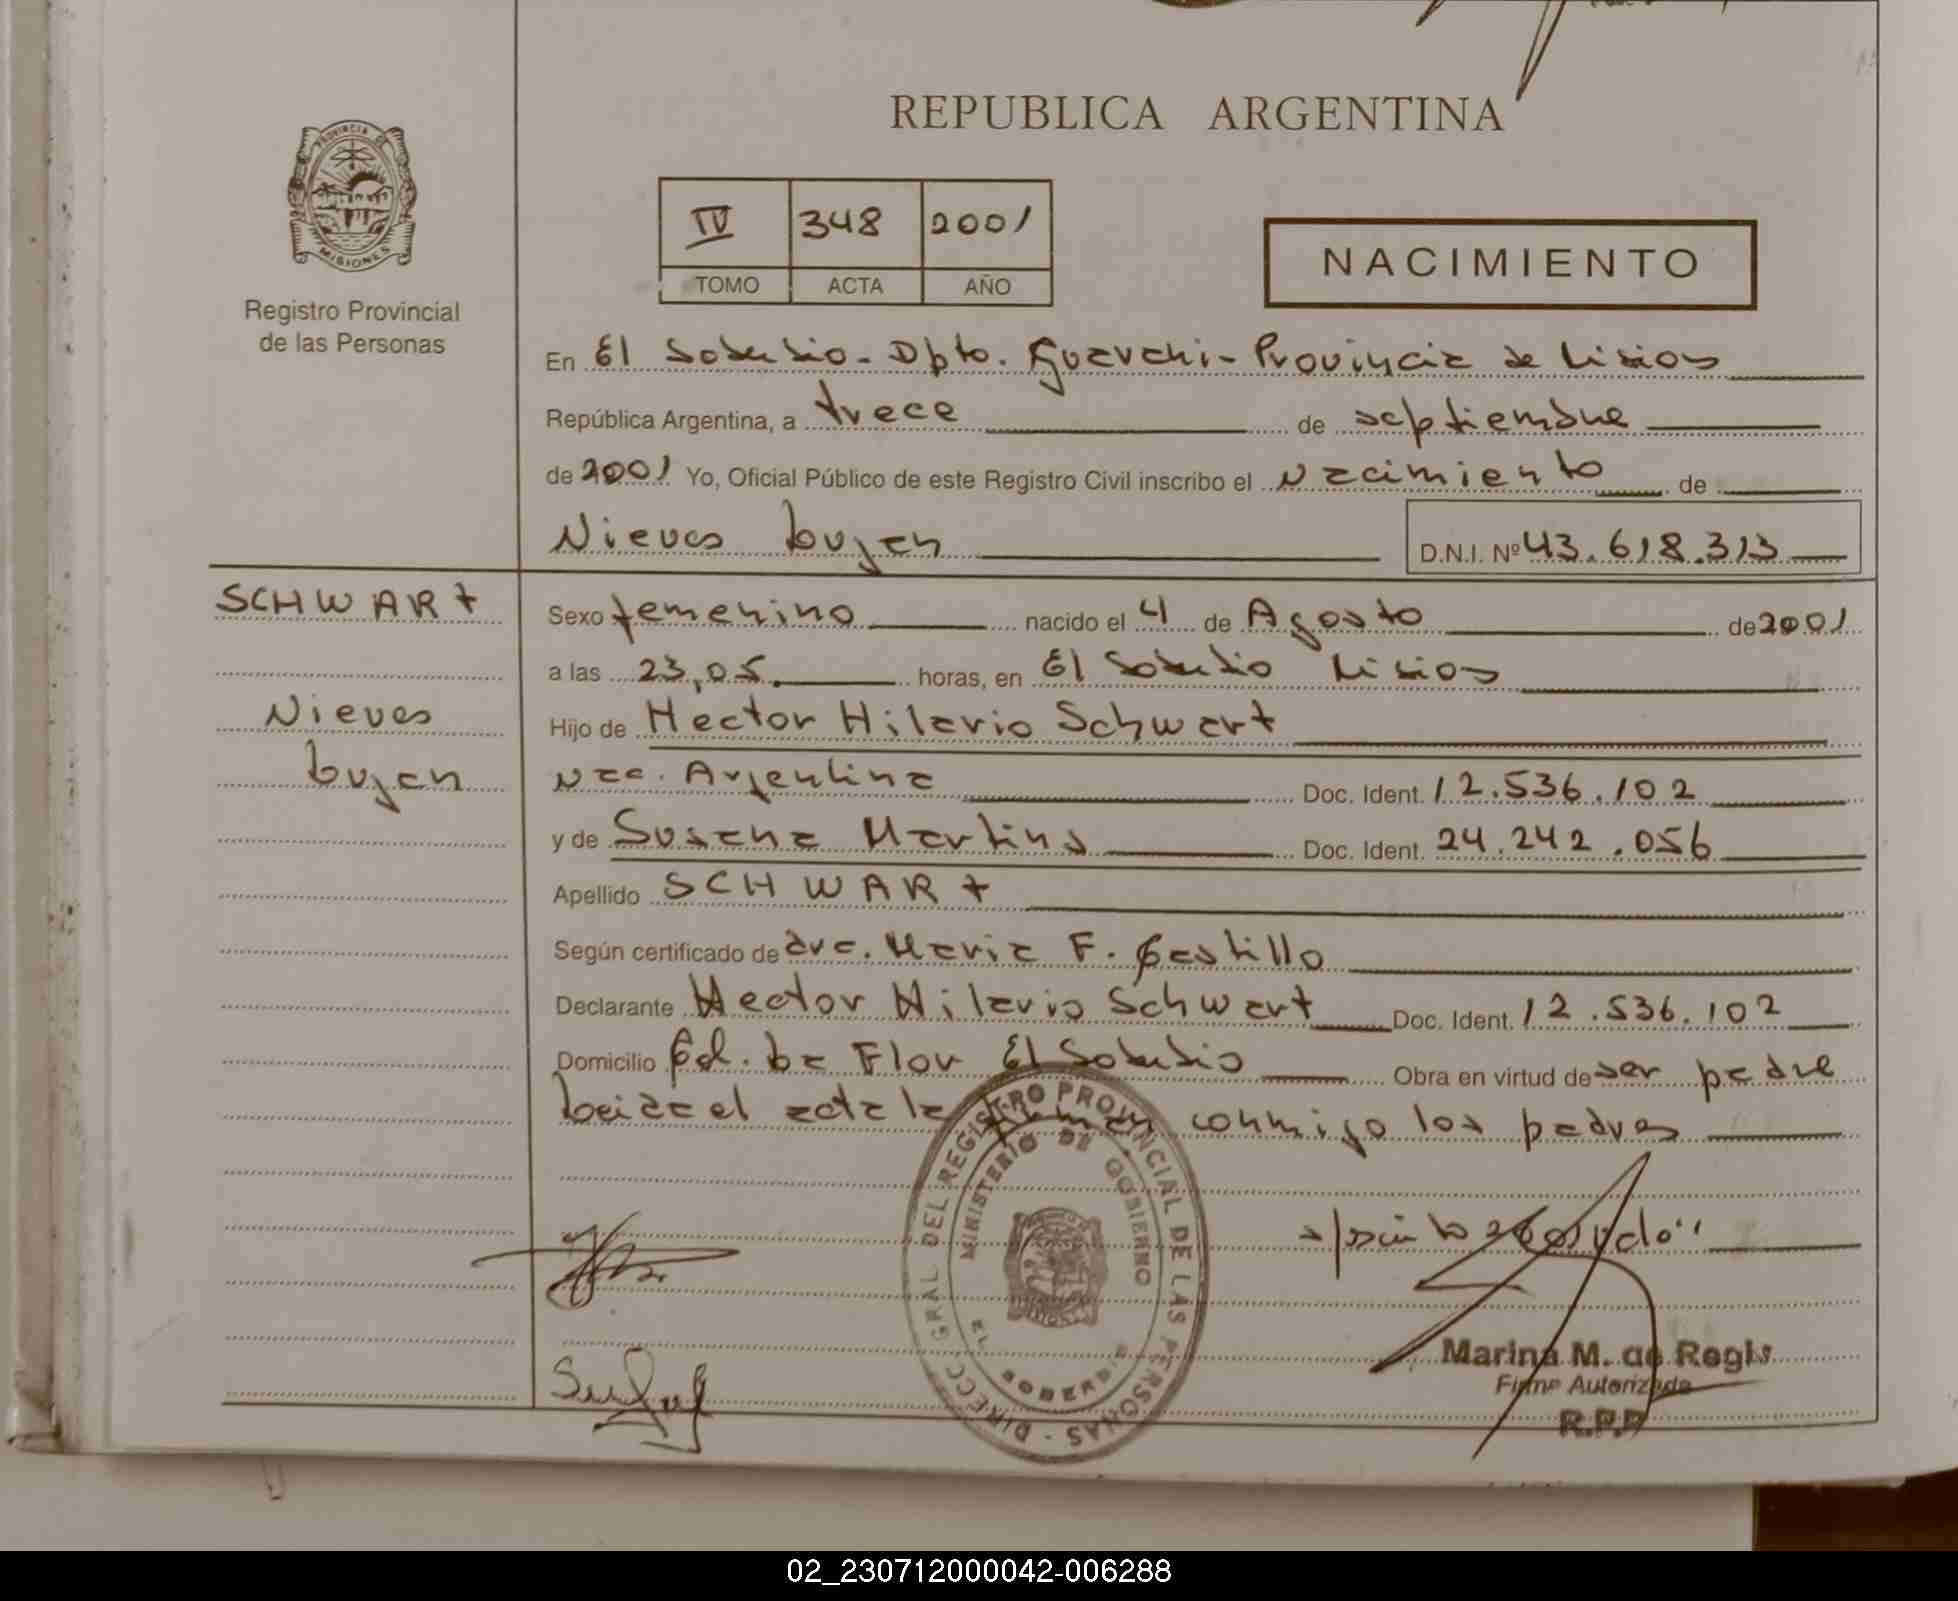 REPUBLICA ARGENTINA
PROVINCIA DE
MISIONES
Registro Provincial
de las Personas
IV 348 2001
TOMO ACTA AÑO
NACIMIENTO
En El Soberbio - Dpto. Guarani - Provincia de Misiones
República Argentina, a trece de septiembre
de 2001 Yo, Oficial Público de este Registro Civil inscribo el Nacimiento de
Nieves Lujan D.N.I. Nº 43.618.313
SCHWART
Nieves
Lujan
Sexo femenino nacido el 4 de Agosto de 2001
a las 23,05. horas, en El Soberbio Misiones
Hijo de Hector Hilario Schwart
Nac. Argentina Doc. Ident. 12.536.102
y de Susana Martins Doc. Ident. 24.242.056
Apellido SCHWART
Según certificado de dra. Maria F. Castillo
Declarante Hector Hilario Schwart Doc. Ident. 12.536.102
Domicilio Col. La Flor El Soberbio Obra en virtud de ser padre
Leida el acta la firman conmigo los padres
DIRECC. GRAL DEL REGISTRO PROVINCIAL DE LAS PERSONAS
MINISTERIO DE GOBIERNO
EL SOBERBIO
Marina M. de Regis
Firma Autorizada
R.P.P
02_230712000042-006288